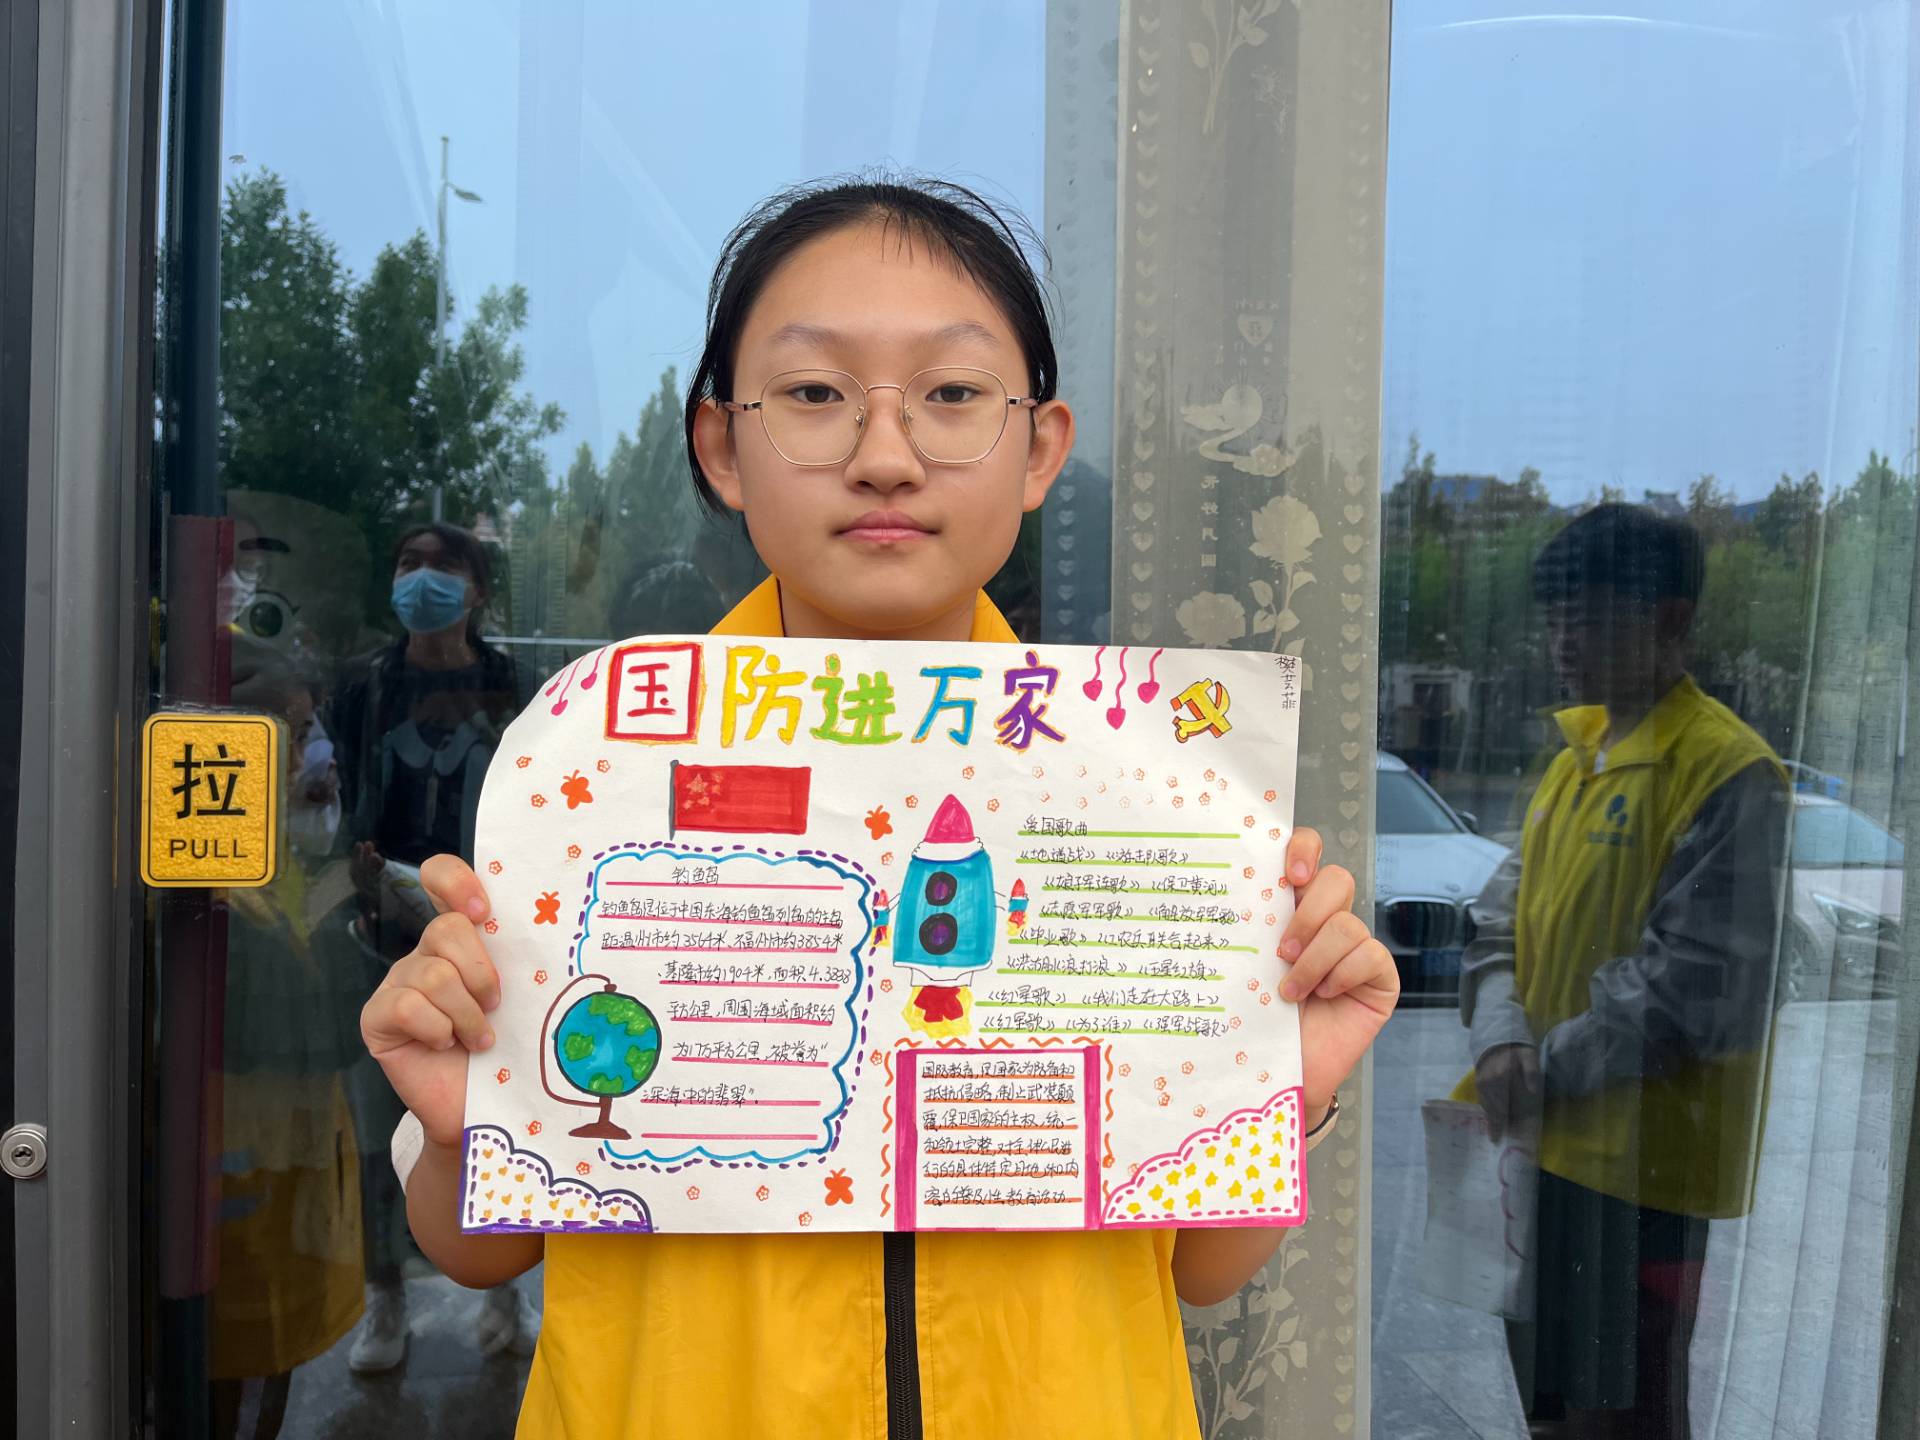 国防进万家
樊芸菲
拉
PULL
钓鱼岛
钓鱼岛是位于中国东海钓鱼岛列岛的主岛
距温州市约356千米、福州市约385千米
、基隆市约190千米,面积4.3838
平方公里,周围海域面积约
为17万平方公里,被誉为"
深海中的翡翠".
爱国歌曲
《地道战》《游击队歌》
《娘子军连歌》《保卫黄河》
《志愿军军歌》《解放军军歌》
《毕业歌》《工农兵联合起来》
《洪湖水浪打浪》《五星红旗》
《红星歌》《我们走在大路上》
《红星歌》《为了谁》《强军战歌》
国防教育,是国家为防备和
抵抗侵略,制止武装颠
覆,保卫国家的主权,统一
和领土完整,对全体公民进
行的具体特定目地和内
容的普及性教育活动.